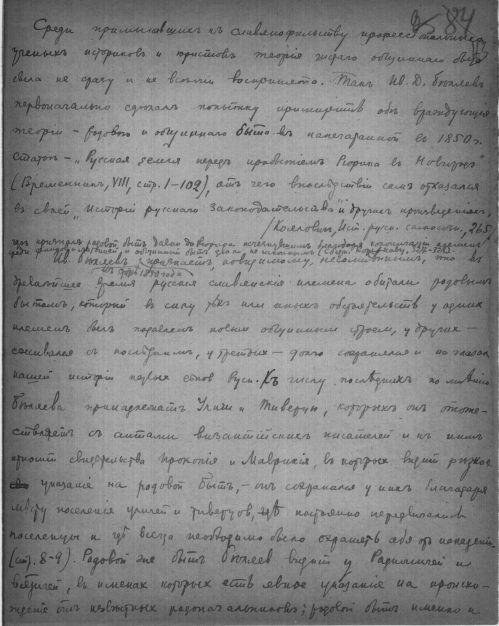 84
Среди примыкавших к славянофильству професс
ученых историков и юристов теория общинного быта
была не сразу и не всеми воспринята. Так Ив. Д. Беляев
первоначально сделал попытку примирить обе враждующия
теории – родового и общинного быта в напечатанной в 1850 г.
статье – „Русская земля перед прибытием Рюрика в Новгород"
(Временник, VIII, стр. 1–102), от чего впоследствии сам отказался
в своей „Истории русского законодательства" и других произведениях,
/Коялович, Ист. русск. самосозн., 265/
Ив. Беляев полагает, повидимому, несомненным, что в
в труде 1850 года
древнейшее время русския славянския племена обитали родовым
бытом, который в силу тех или иных обстоятельств у одних
племен был подавлен новым общинным строем, у других –
сливался с последним, у третьих – долго сохранялся и на глазах
нашей истории первых веков Руси. К числу последних по мнению
Беляева принадлежат Уличи и Тиверцы, которых он отоже-
ствляет с антами византийских писателей и к ним
относит свидетельства Прокопия и Маврикия, в которых видит резкое
указание на родовой быт, – он сохранился у них благодаря
месту поселения уличей и тиверцов, где постоянно передвигались
поселенцы и где всегда необходимо было охранять себя от нападений
(стр. 8–9). Родовой же быт Беляев видит у Радимичей и
Вятичей, в именах которых есть явное указание на происхо-
ждение от известных родоначальников; родовой быт именно и